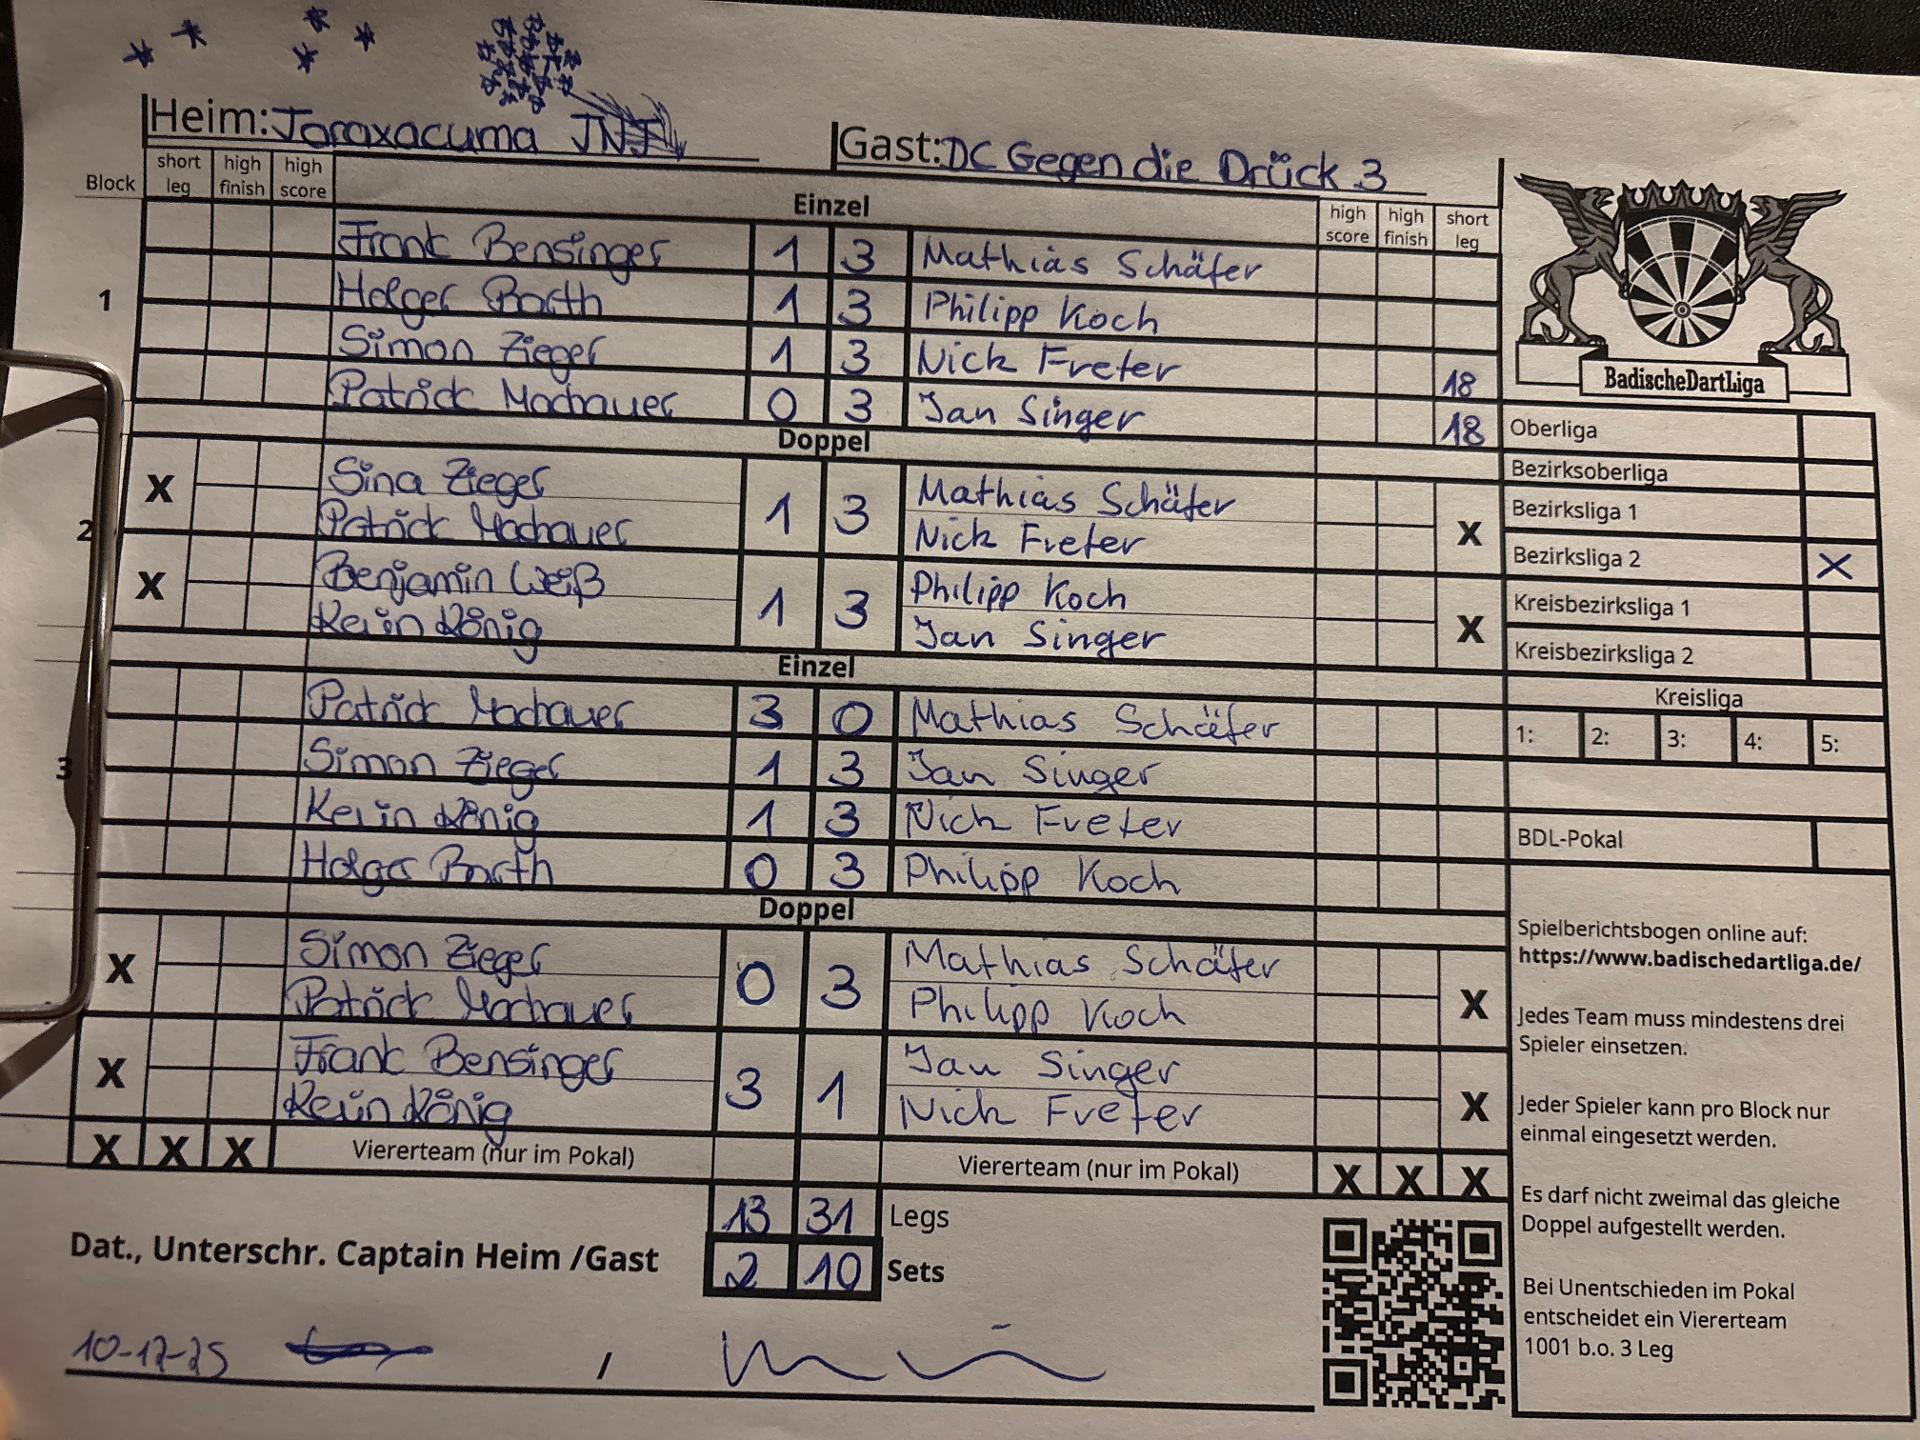 Heim: Taraxacuma JNJ
Gast: DC Gegen die Drück 3
Block short leg high finish high score
Einzel
high score high finish short leg
1
Frank Bensinger 1 3 Mathias Schäfer
Holger Barth 1 3 Philipp Koch
Simon Zieger 1 3 Nick Freter 18
Patrick Machauer 0 3 Jan Singer 18
Doppel
2
X Sina Zieger 1 3 Mathias Schäfer X
Patrick Machauer Nick Freter
X Benjamin Weiß 1 3 Philipp Koch X
Kevin König Jan Singer
Einzel
3
Patrick Machauer 3 0 Mathias Schäfer
Simon Zieger 1 3 Jan Singer
Kevin König 1 3 Nick Freter
Holger Barth 0 3 Philipp Koch
Doppel
X Simon Zieger 0 3 Mathias Schäfer X
Patrick Machauer Philipp Koch
X Frank Bensinger 3 1 Jan Singer X
Kevin König Nick Freter
X X X Viererteam (nur im Pokal) Viererteam (nur im Pokal) X X X
13 31 Legs
2 10 Sets
Dat., Unterschr. Captain Heim /Gast
10-12-25 /
BadischeDartLiga
Oberliga
Bezirksoberliga
Bezirksliga 1
Bezirksliga 2 X
Kreisbezirksliga 1
Kreisbezirksliga 2
Kreisliga
1: 2: 3: 4: 5:
BDL-Pokal
Spielberichtsbogen online auf:
https://www.badischedartliga.de/
Jedes Team muss mindestens drei
Spieler einsetzen.
Jeder Spieler kann pro Block nur
einmal eingesetzt werden.
Es darf nicht zweimal das gleiche
Doppel aufgestellt werden.
Bei Unentschieden im Pokal
entscheidet ein Viererteam
1001 b.o. 3 Leg